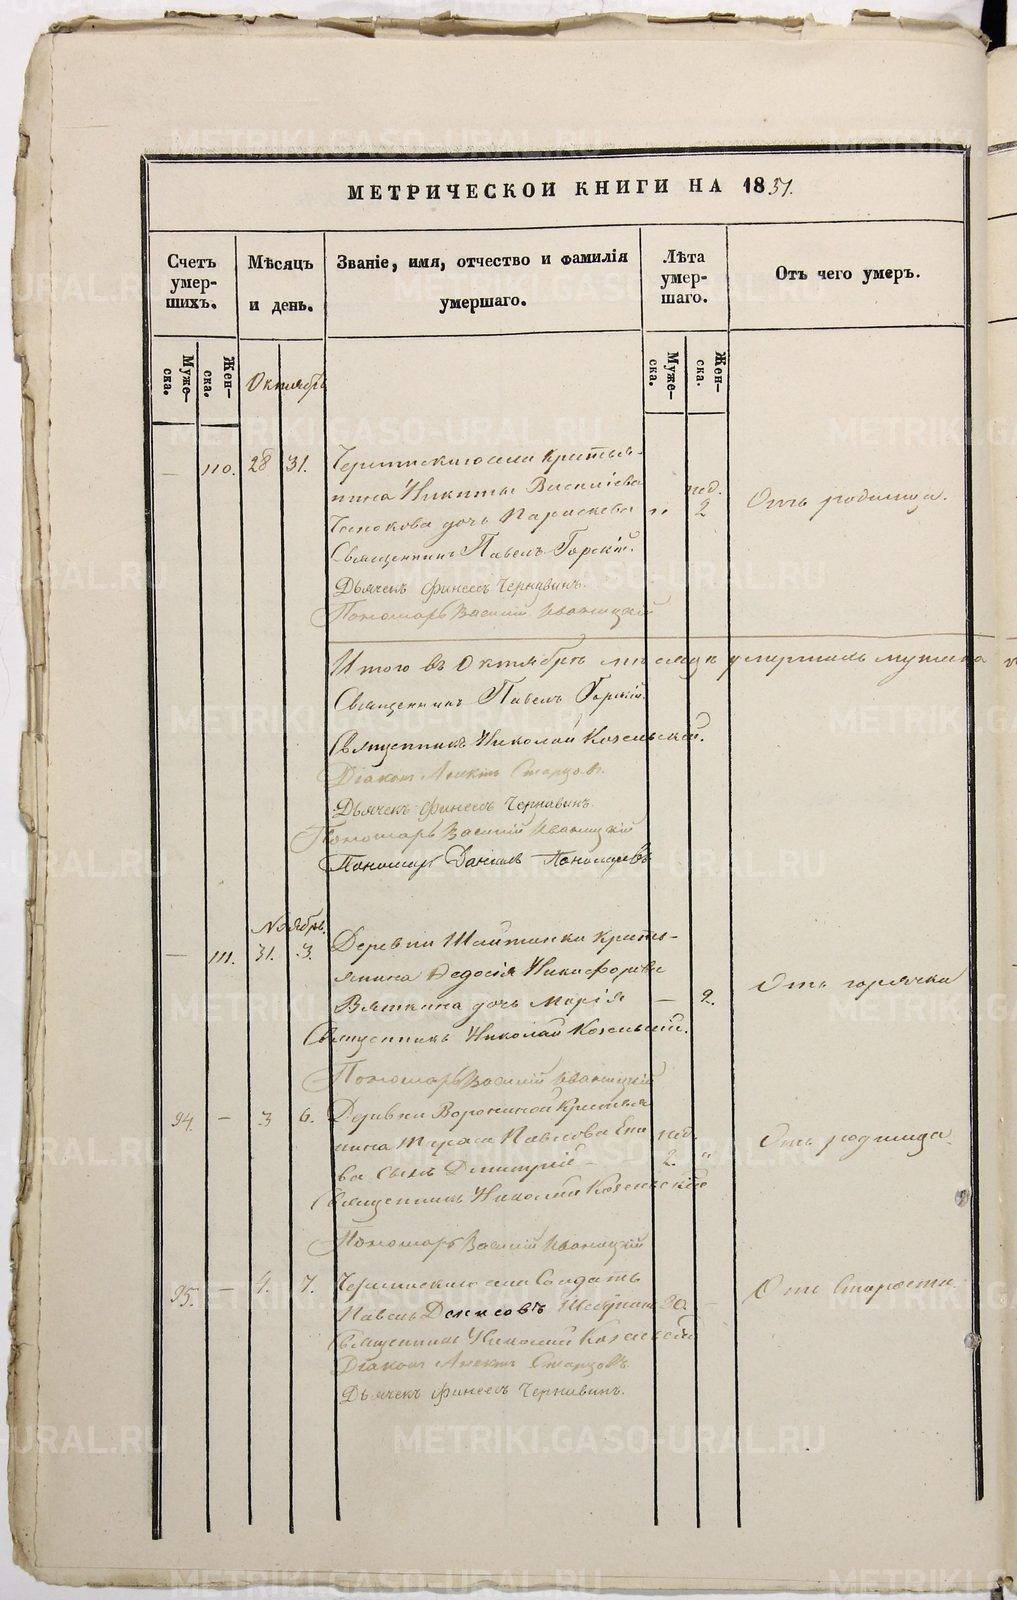 МЕТРИЧЕСКОЙ КНИГИ НА 1851.
Счетъ умер- шихъ.
Мѣсяцъ и день.
Званіе, имя, отчество и фамилія умершаго.
Лѣта умер- шаго.
Отъ чего умеръ.
Муже- ска.
Жен- ска.
Муже- ска.
Жен- ска.
Октябрь
— 110. 28 31. села крестья-
нина Никиты Василіева нед.
дочь Параскева " 2 Отъ родимца.
Священникъ Павелъ Горскій.
Дьячекъ Финеесъ Чернавинъ.
Пономарь Василій Иваницкій
Итого въ Октябрѣ месяцѣ умершихъ мужеска
Священникъ Павелъ Горскій.
Священникъ Николай Козельскій.
Діаконъ Старцовъ.
Дьячекъ Финеесъ Чернавинъ.
Пономарь Василій Иваницкій
Пономарь Даніилъ Пономаревъ
Ноябрь.
— 111. 31. 3. Деревни Шайтанки кресть-
янина Федосія Никифорова
Вяткина дочь Марія — 2. Отъ горячки
Священникъ Николай Козельскій.
Пономарь Василій Иваницкій
94. — 3 6. Деревни Ворониной Крестья
нина Тераса Павлова нед.
ва сынъ Димитрій 2. " Отъ родимца.
Священникъ Николай Козельскій
Пономарь Василій Иваницкій
95. — 4. 7. села Солдатъ
Павелъ Денисовъ 80. — Отъ Старости.
Священникъ Николай Козельскій
Діаконъ Старцовъ.
Дьячекъ Финеесъ Чернавинъ.
METRIKI.GASO-URAL.RU